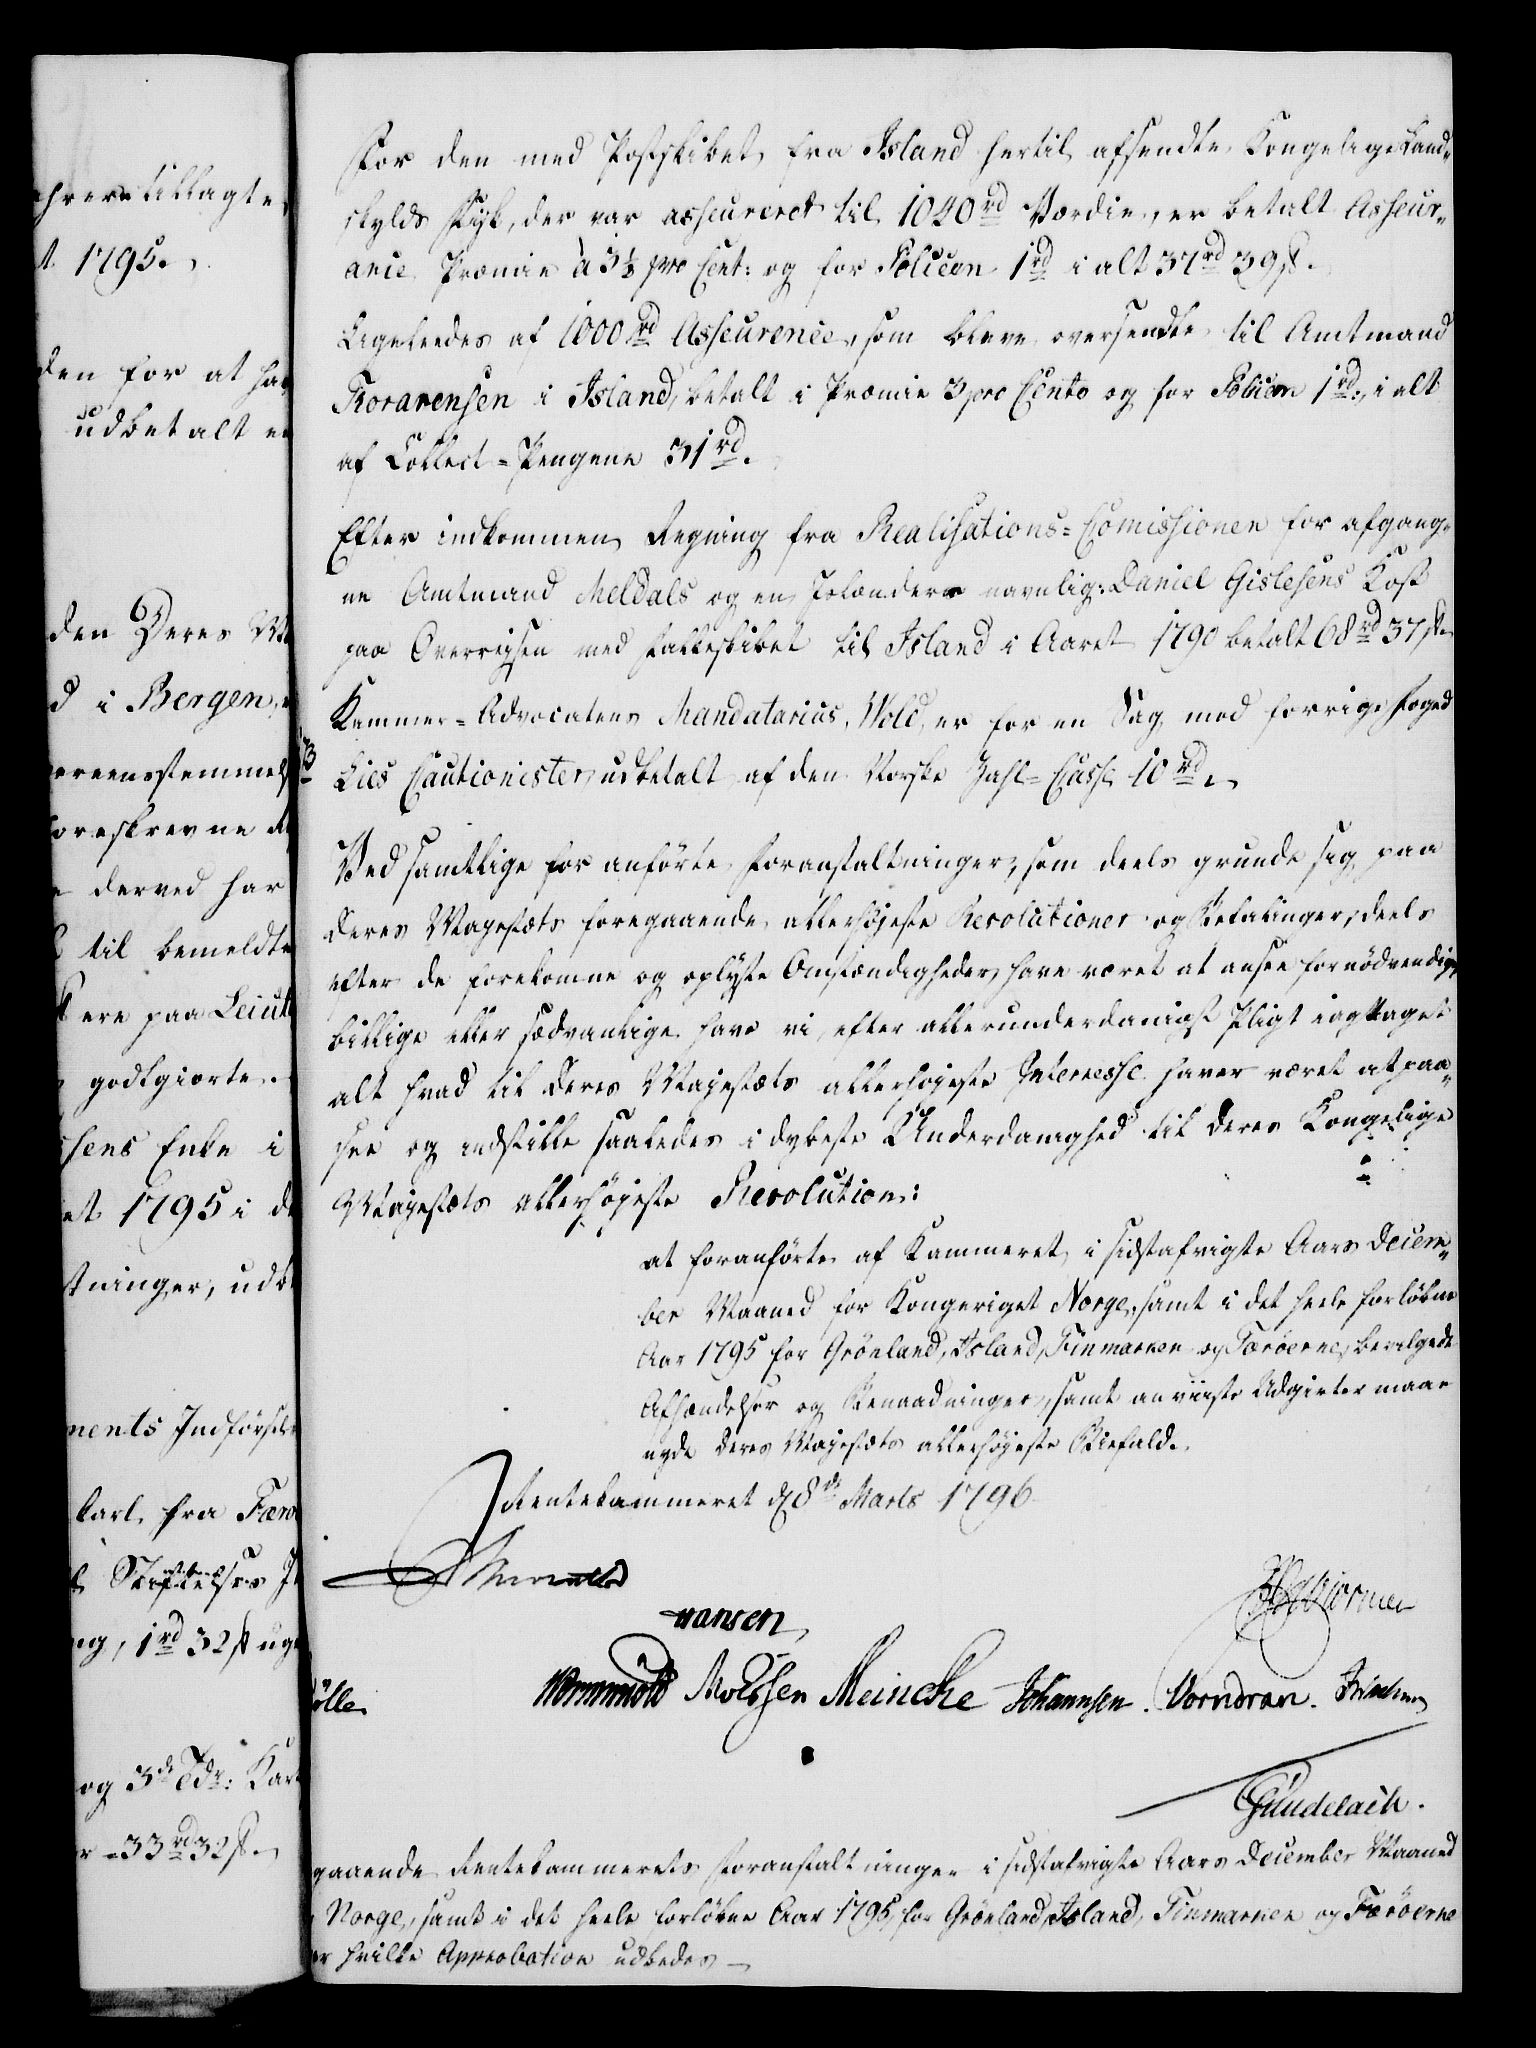 ehrere tillagte
t. 1795.
den for at ha
udbetalt e
den Deres Ma
d i Bergen,
vereensstemmels
foreskrevne R
derved har
til bemeldte
ere paa Leiut
godtgiorte.
sens Enke i
et 1795 i d
stninger, udb
ments Indførsel
karl fra Færø
Stiftelses
ng, 1 rd 32 ß ug
ölle
og 3de Edr: Kar
33 rd 32 ß.
For den med Postskibet fra Island hertil afsendte Kongelige Land-
skylds Fisk, der var asseureret til 1040 rd Værdie, er betalt Asseur-
ance Præmie à 3½ pro Cent: og for Policen 1 rd i alt 37 rd 39 ß.
Ligeledes af 1000 rd Asseurence, som bleve oversendte til Amtmand
Thorarensen i Island, betalt i Præmie 3 pro Cento og for Policen 1 rd, i alt
af Collect-Pengene 31 rd.
Efter indkommen Regning fra Realisations-Comissionen for afgang-
ne Amtmand Meldals og en Islænder navnlig: Daniel Gislesens Kost
paa Overreysen med Falkeskibet til Island i Aaret 1790 betalt 68 rd 37 ß.
Kammer-Advocatens Mandatarius, Wold, er for en Sag mod forrige Foged
Lies Cautionister udbetalt af den Norske Zahl-Casse 10 rd.
Ved samtlige for anførte Foranstaltninger, som deels grunde sig paa
Deres Majestæts foregaaende allerhøjeste Resolutioner og Befalinger, deels
efter de forekomne og oplyste Omstændigheder have været at ansee for nødvendige,
billige eller sædvanlige have vi efter allerunderdanigst Pligt iagttaget
alt hvad til Deres Majestæts allerhøjeste Interesse haver været at paa-
see og indstille saaledes i dybeste Underdanighed til Deres Kongelige
Majestæts allerhøjeste Resolution:
at foranførte af Kammeret i sidstafvigte Aars Decem-
ber Maaned for Kongeriget Norge, samt i det heele forløbne
Aar 1795 for Grönland, Island, Finmarken og Færöerne bevilgede
Afhændelser og Benaadninger, samt anviiste Udgivter maae
nyde Deres Majestæts allerhøjeste Biefald.
Rentekammeret d 8de Marts 1796
Hansen
Wormskiold Moessen Meincke Johannsen. Vorndran.
Gundelach.
gaaende Rentekammerets Foranstaltninger i sidstafvigte Aars December Maaned
Norge, samt i det heele forløbne Aar 1795 for Grönland, Island, Finmarken og Færöerne
er hvilke Approbation udbedes